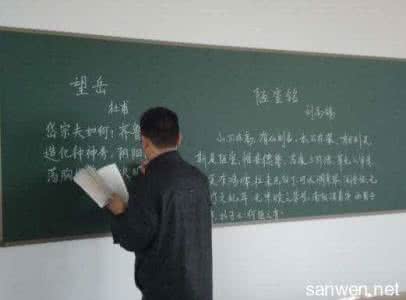 望岳
杜甫
岱宗夫如何：齐鲁
造化神秀，阴阳
荡胸
陋室铭
刘禹锡
山不在高，有仙则名。水不在深，有龙则灵
斯是陋室，惟吾德馨。苔痕上阶绿，草色入帘青
笑有鸿儒，往来无白丁。可以调素琴，阅金经。无
竹之乱耳，无案牍之劳形。南阳诸葛庐，西蜀子
云亭。孔子云：何陋之有？
sanwen.net